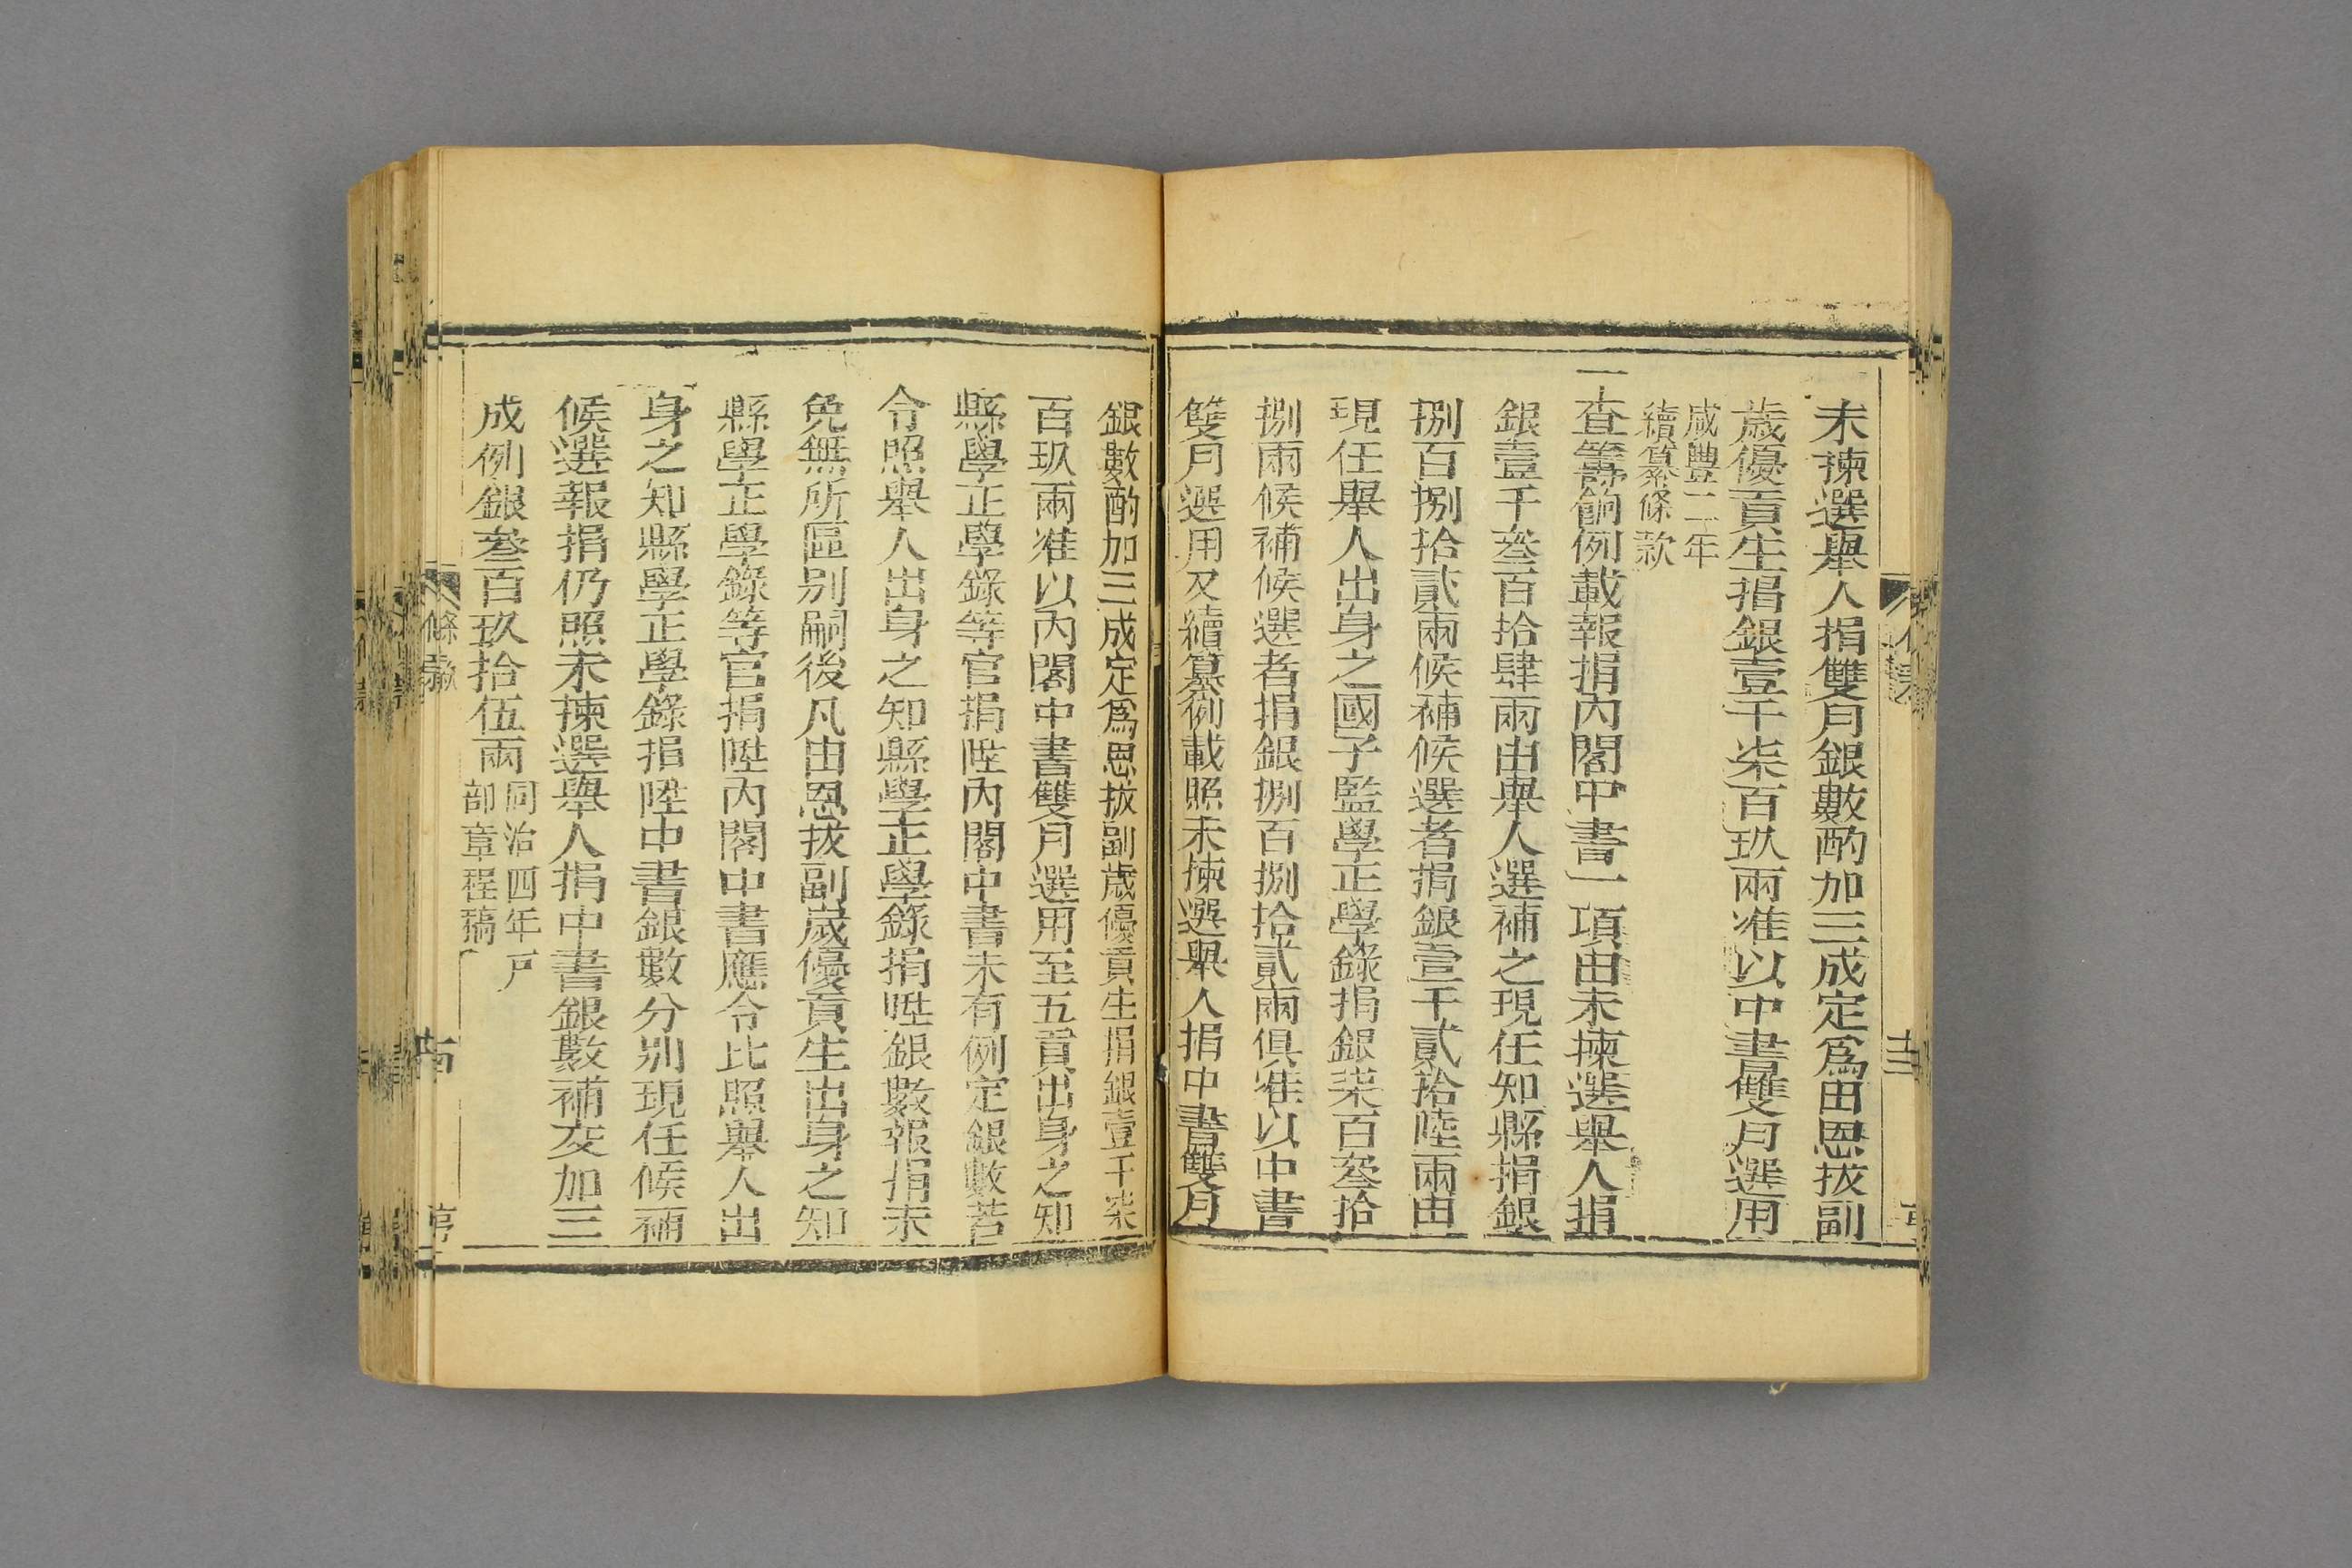 未揀選舉人捐雙月銀數酌加三成定爲由恩拔副
歲優貢生捐銀壹千柒百玖兩准以中書雙月選用
咸豐二年
續纂條款
一查籌餉例載報捐內閣中書一項由未揀選舉人捐
銀壹千叁百拾肆兩由舉人選補之現任知縣捐銀
捌百捌拾貳兩候補候選者捐銀壹千貳拾陸兩由
現任舉人出身之國子監學正學錄捐銀柒百叁拾
捌兩候補候選者捐銀捌百捌拾貳兩俱准以中書
雙月選用又續纂例載照未揀選舉人捐中書雙月
銀數酌加三成定爲恩拔副歲優貢生捐銀壹千柒
百玖兩准以內閣中書雙月選用至五貢出身之知
縣學正學錄等官捐陞內閣中書未有例定銀數若
令照舉人出身之知縣學正學錄捐陞銀數報捐未
免無所區别嗣後凡由恩拔副歲優貢生出身之知
縣學正學錄等官捐陞內閣中書應令比照舉人出
身之知縣學正學錄捐陞中書銀數分别現任候補
候選報捐仍照未揀選舉人捐中書銀數補交加三
成例銀叁百玖拾伍兩
同治四年戶
部章程稿
條款